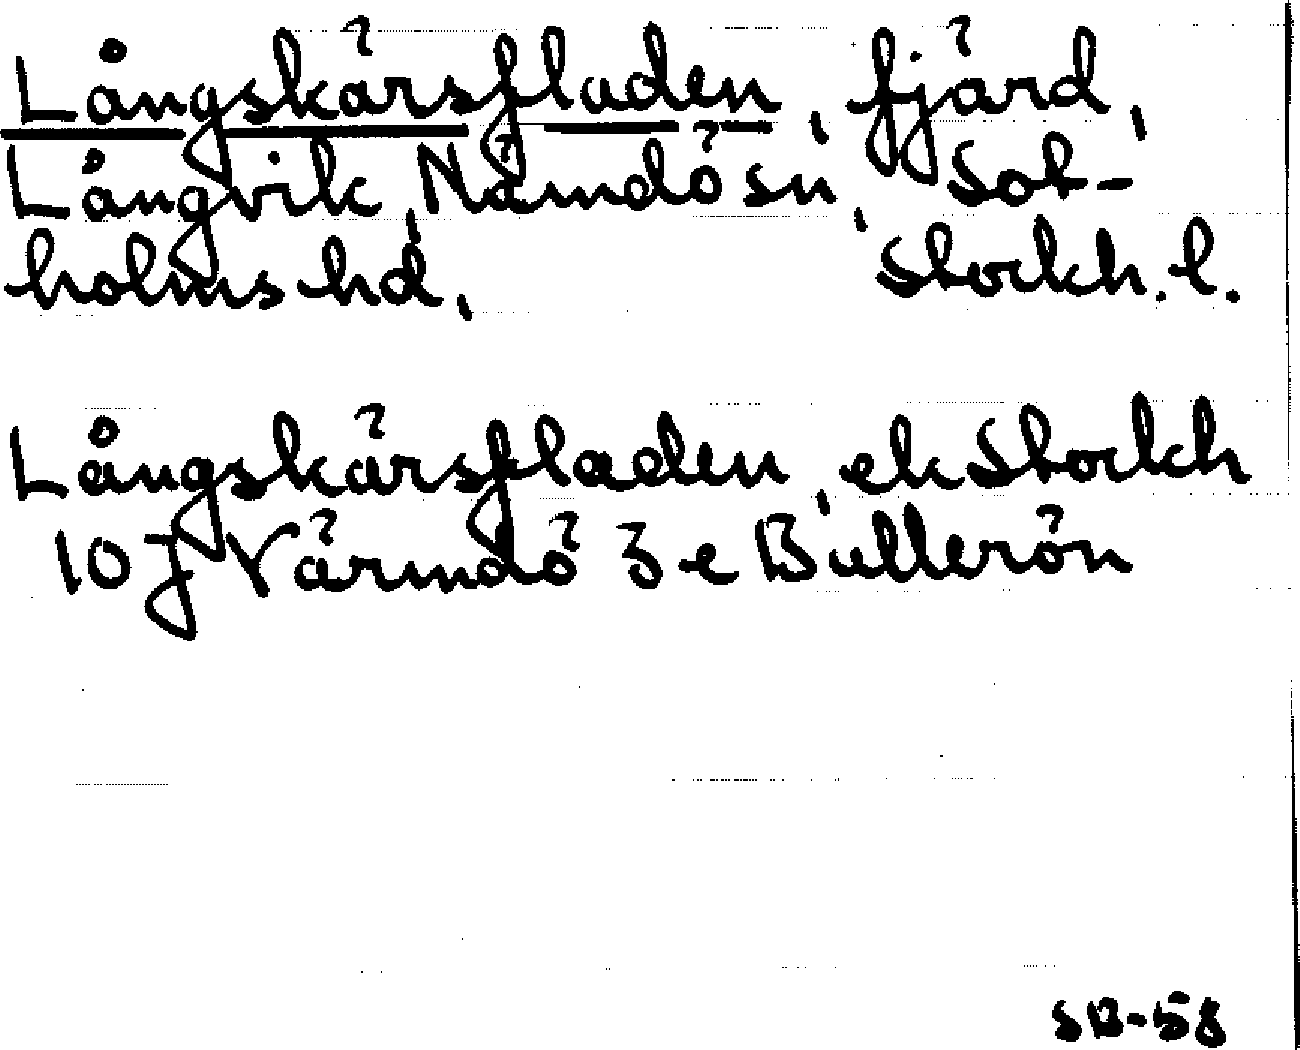 Långskärsfladen, fjärd,
Långvik, Nämdö sn, Sot-
holms hd, Stockh. l.
Långskärsfladen, ek Stockh
10 j Värmdö 3 e Bullerön
SB-58